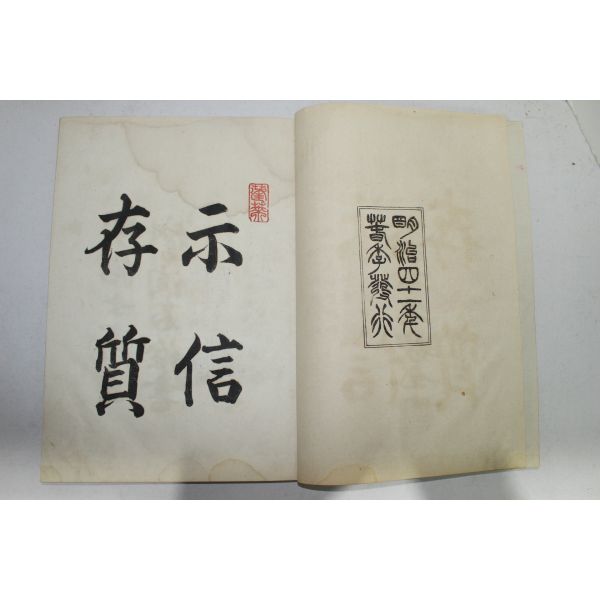 明治四十一年
春季發行
示信
存質